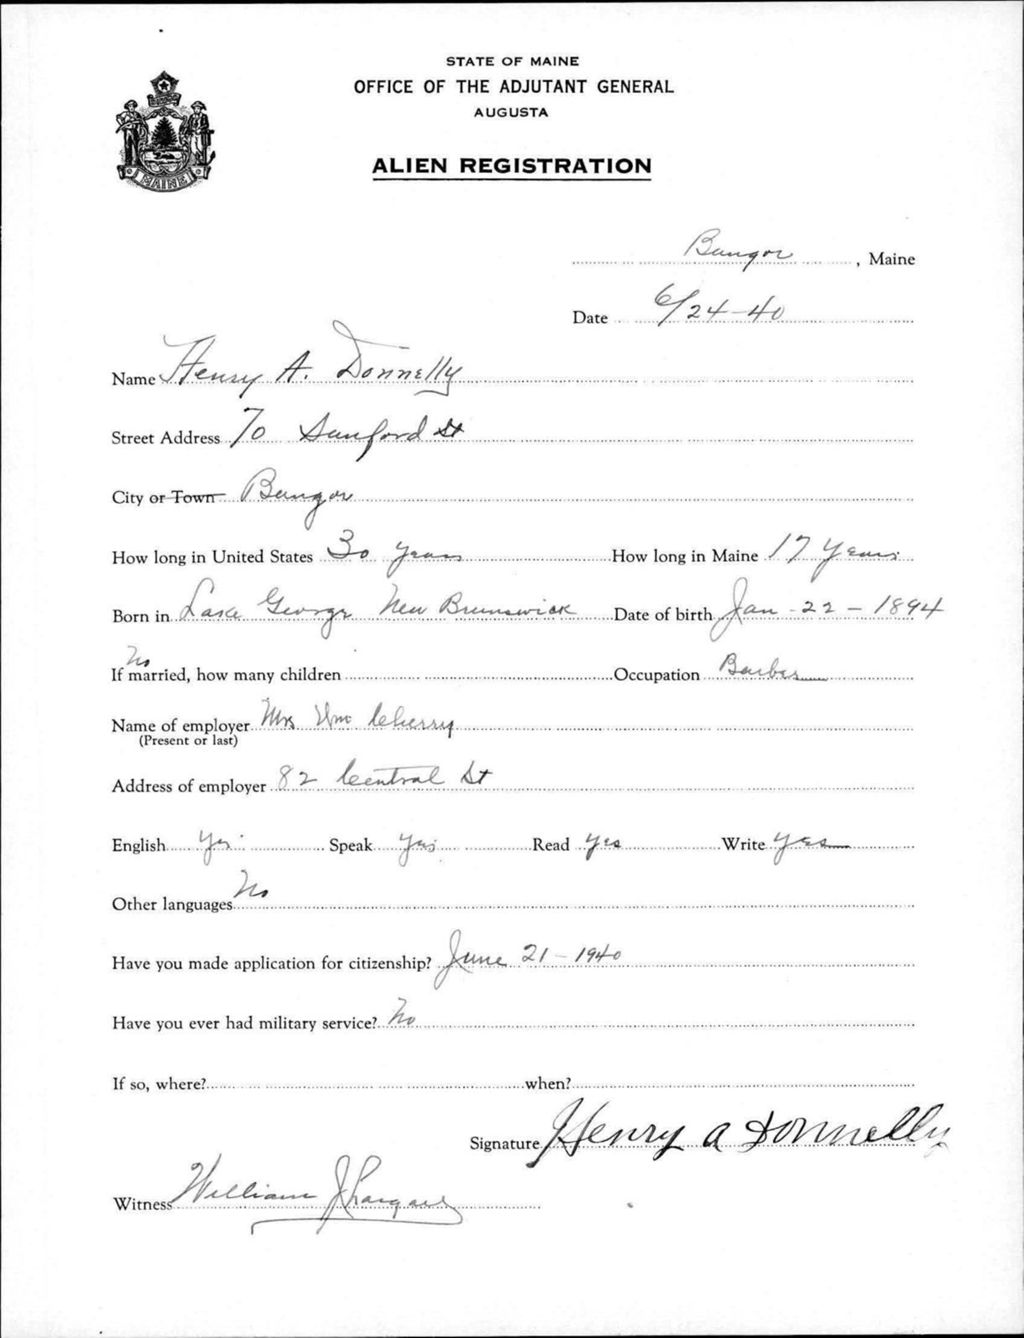 STATE OF MAINE
OFFICE OF THE ADJUTANT GENERAL
AUGUSTA
ALIEN REGISTRATION
MAINE
Bangor, Maine
Date 6/24-40
Name Henry A. Donnelly
Street Address 70 Sanford St
City or Town Bangor
How long in United States 30 years How long in Maine 17 years
Born in Lake George New Brunswick Date of birth Jan-22-1894
No
If married, how many children Occupation Barber
Name of employer Mrs Wm Cherry
(Present or last)
Address of employer 82 Central St
English Yes Speak Yes Read yes Write yes
Other languages No
Have you made application for citizenship? June 21-1940
Have you ever had military service? No
If so, where? when?
Signature Henry A Donnelly
Witness William J